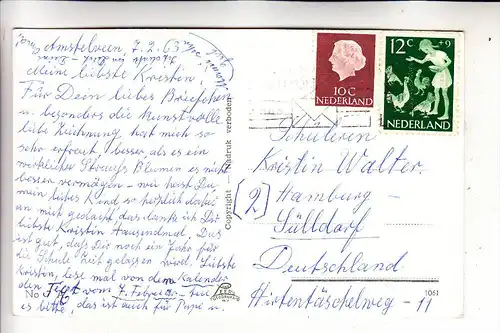 Amstelveen, 7.2.63
Meine liebste Kristin!
Für Dein liebes Briefchen
u. besonders die kunstvolle
liebe Zeichnung hat mich so
sehr erfreut, besser als es ein
wirklicher Strauss Blumen es nicht
besser vermögen – wie hast Du
mein liebes Kind so herzlich dafür
an mich gedacht, das danke ich Dir
liebste Kristin tausendmal. Das
ist gut, dass Dir noch ein Jahr für
die Schule Zeit gelassen wird. Liebste
Kristin, lese mal von dem Kalender
den Text vom 7. Februar
es bitte, das ist auch für Papi u.
No
Copyright
Nachdruck verboten
10 C
NEDERLAND
12 C +9
NEDERLAND
Schülerin
Kristin Walter
(2) Hamburg –
Sülldorf
Deutschland
Hirtentäschelweg – 11
1061